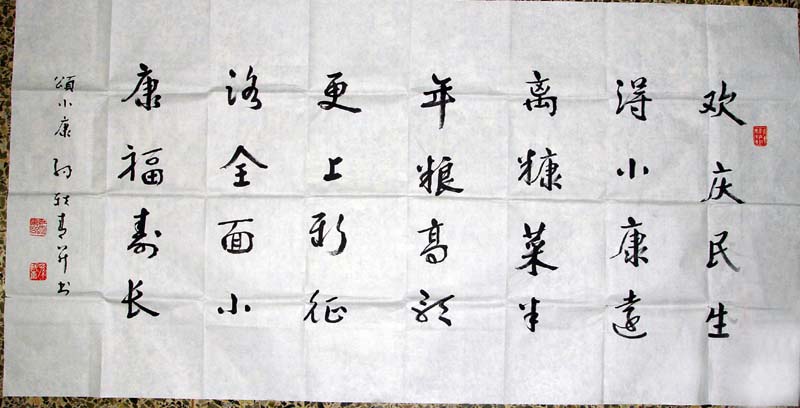 欢庆民生
得小康遠
离糠菜半
年粮高歌
更上新征
路全面小
康福寿长
頌小康 青并书